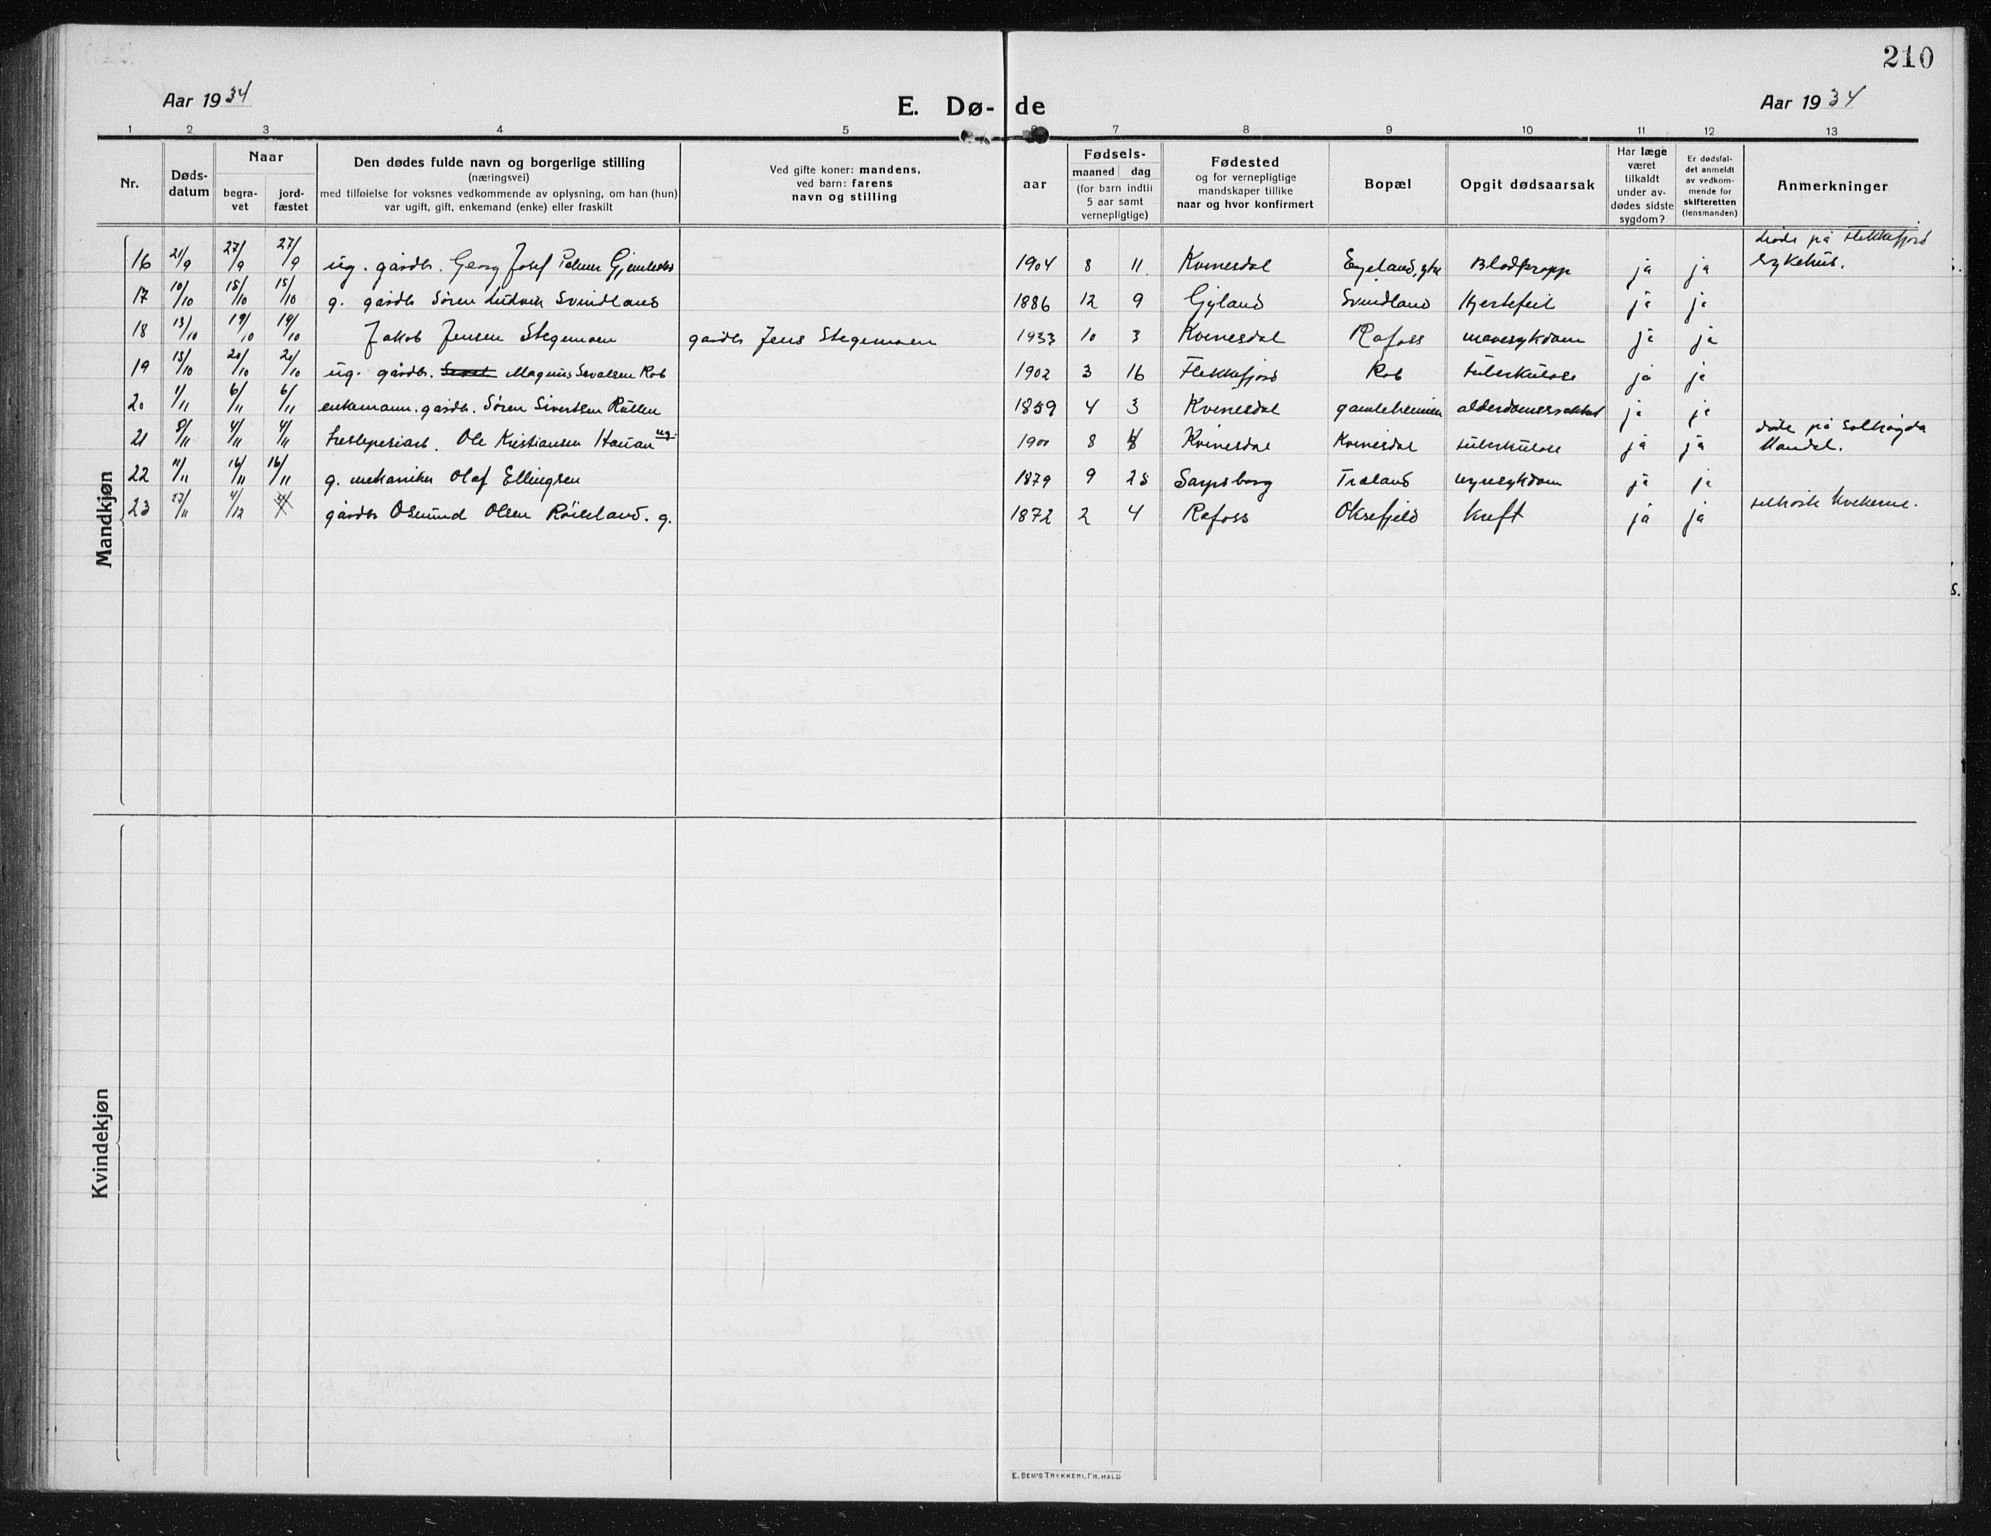 210
Aar 1934
E. Dø- de
Aar 1934
1 2 3 4 5 6 7 8 9 10 11 12 13
Nr.
Døds-
datum
Naar
begra-
vet
jord-
fæstet
Den dødes fulde navn og borgerlige stilling
(næringsvei)
med tilføielse for voksnes vedkommende av oplysning, om han (hun)
var ugift, gift, enkemand (enke) eller fraskilt
Ved gifte koner: mandens,
ved barn: farens
navn og stilling
aar
Fødsels-
maaned dag
(for barn indtil
5 aar samt
vernepligtige)
Fødested
og for vernepligtige
mandskaper tillike
naar og hvor konfirmert
Bopæl
Opgit dødsaarsak
Har læge
været
tilkaldt
under av-
dødes sidste
sygdom?
Er dødsfal-
det anmeldt
av vedkom-
mende for
skifteretten
(lensmanden)
Anmerkninger
Mandkjøn
16 21/9 27/9 27/9 ug. gårdbr. Georg Josef 1904 8 11 Kvinesdal Egeland, Blodpropp ja ja døde på Flekkefjord
sykehus.
17 10/10 15/10 15/10 g. gårdbr Sören Ludvik Svindland 1886 12 9 Gyland Svindland hjertefeil ja ja
18 13/10 19/10 19/10 Jakob Jensen Stegemoen gårdbr Jens Stegemoen 1933 10 3 Kvinesdal Rafoss mavesykdom ja ja
19 15/10 20/10 20/10 ug. gårdbr. Magnus Sevalsen Rob 1902 3 16 Flekkefjord Rob tuberkulose ja ja
20 1/11 6/11 6/11 enkemann. gårdbr. Sören Sivertsen 1859 4 3 Kvinesdal gamleheimen ja ja
21 8/11 4/11 4/11 Ole Kristiansen Hauan ug. 1900 8 Kvinesdal Kvinesdal tuberkulose ja ja døde på
Mandal.
22 11/11 16/11 16/11 g. mekaniker Olaf Ellingsen 1879 9 25 Sarpsborg Træland nyresykdom ja ja
23 27/11 4/12 gårdbr Osmund Olsen Röiseland. g. 1872 2 4 Rafoss Oksefjeld kreft ja ja
Kvindekjøn
E. SEM'S TRYKKERI, FR.HALD